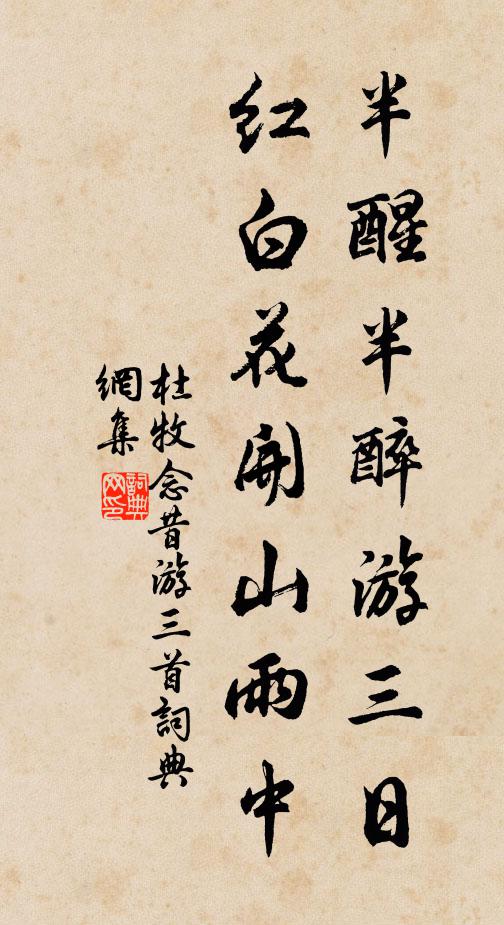 半醒半醉游三日
紅白花開山雨中
杜牧念昔游三首詞典
網集
詞典网印